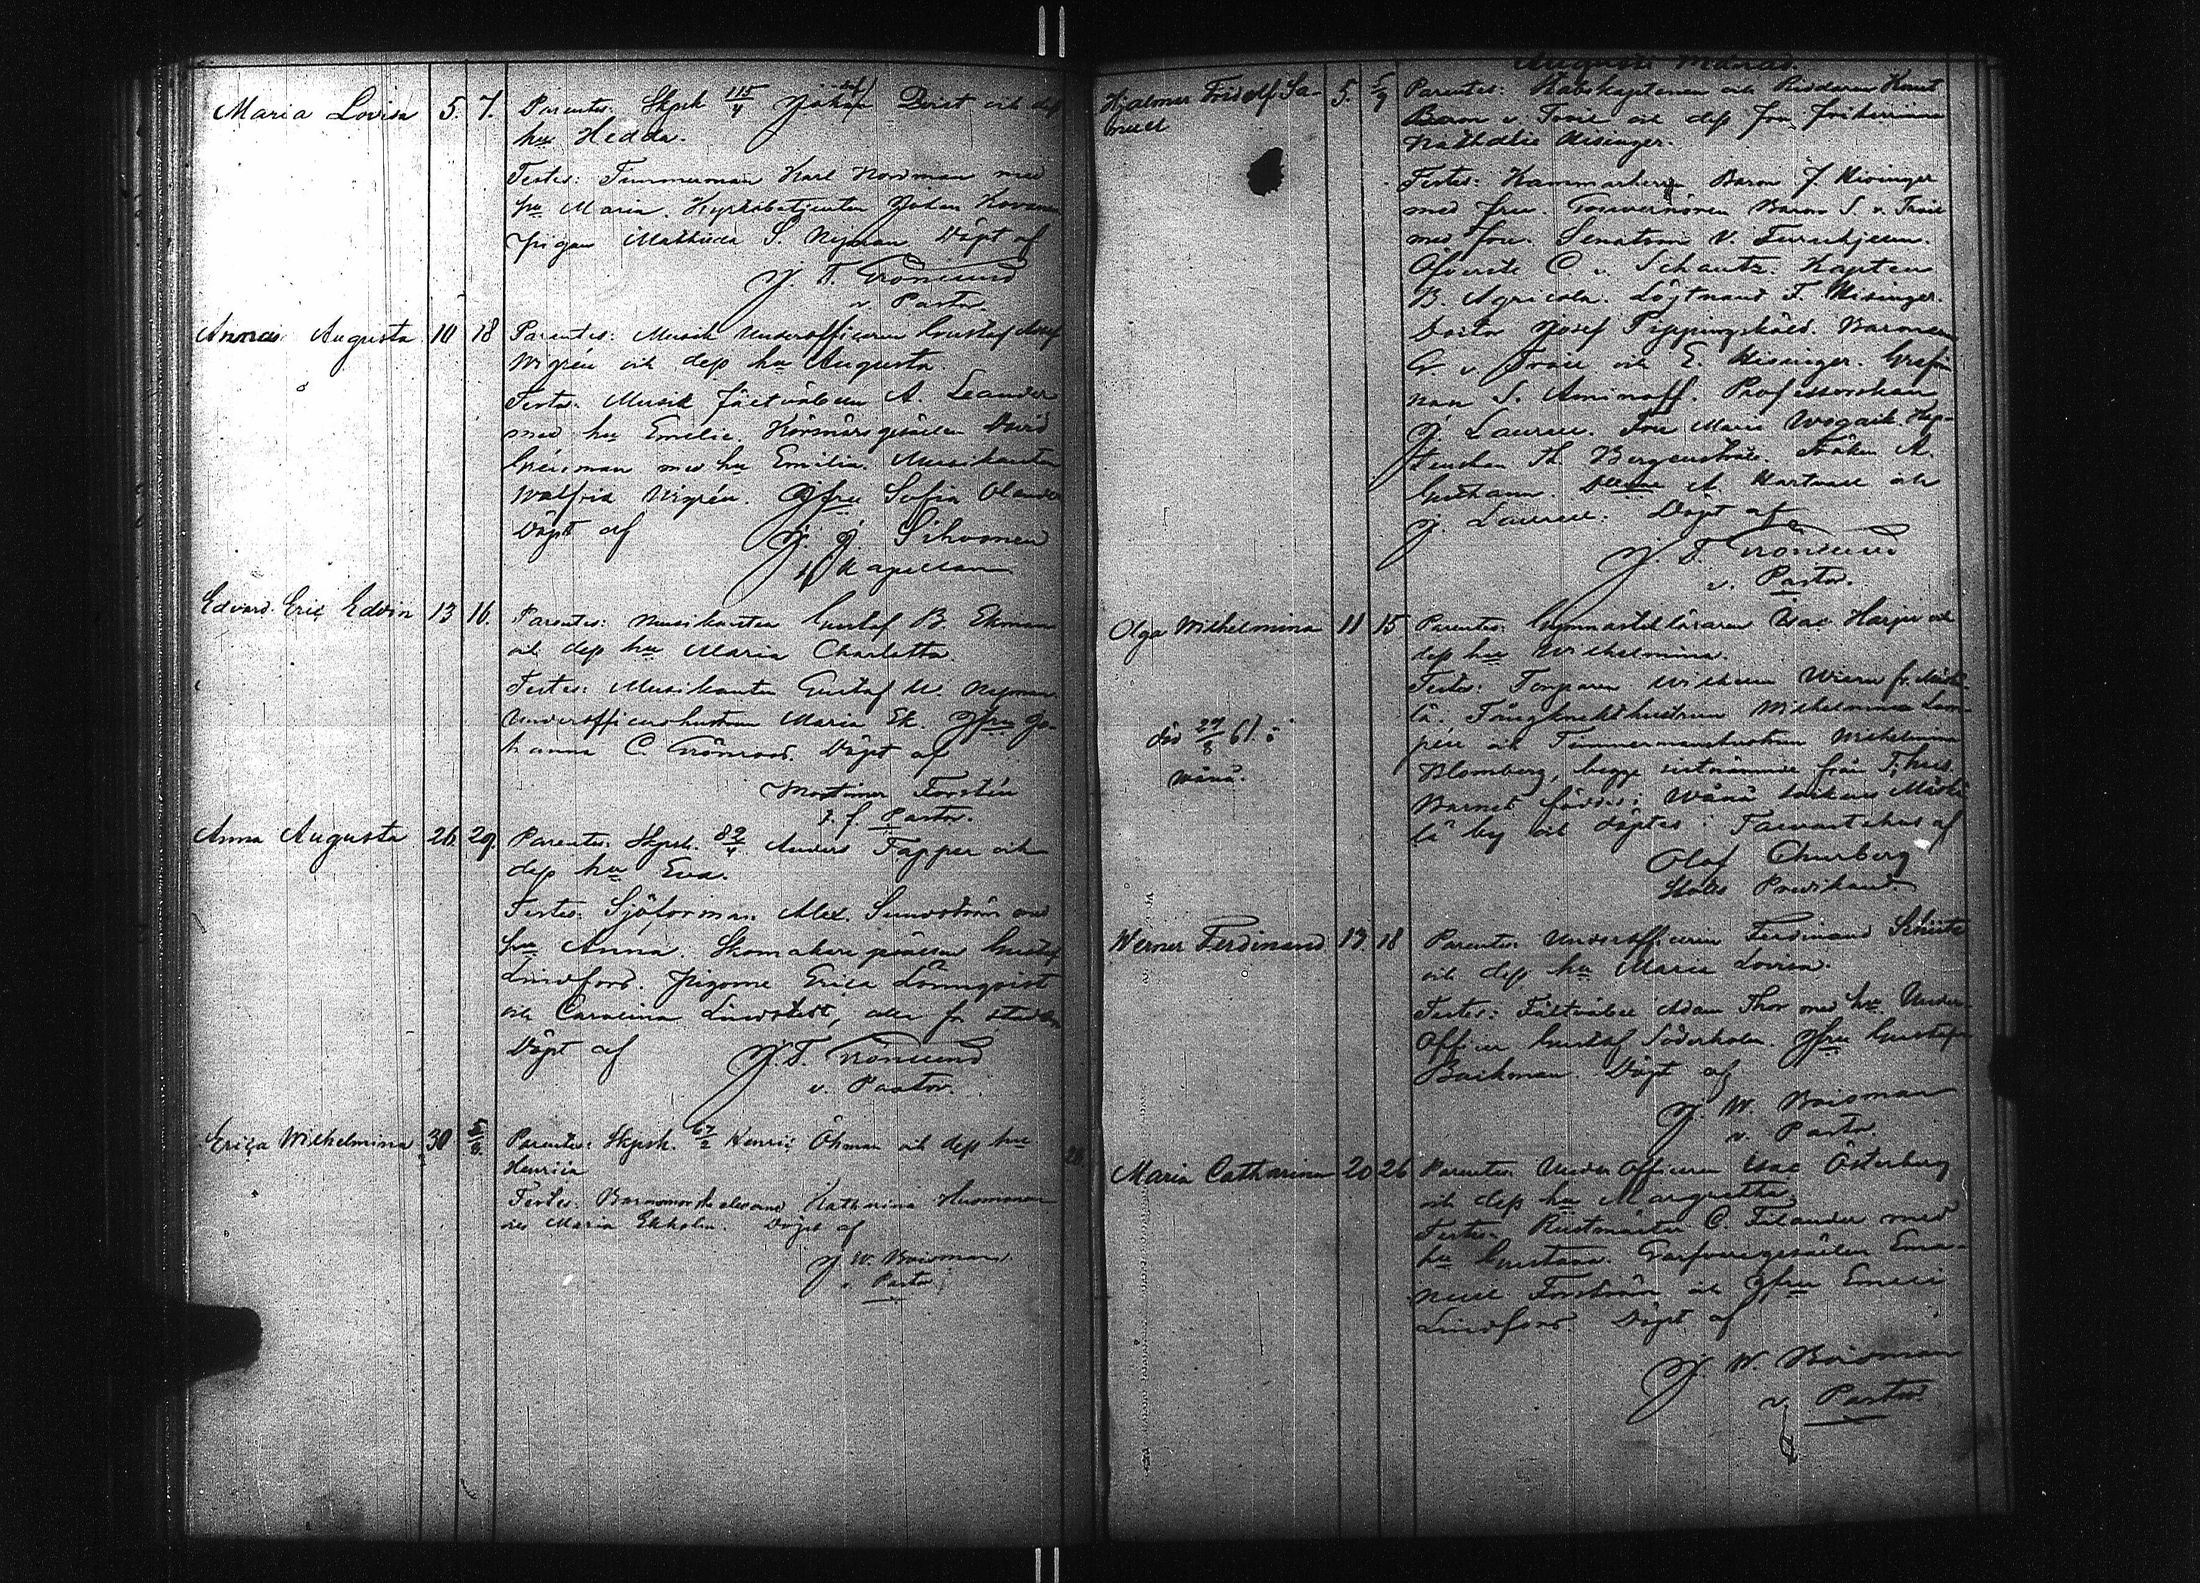 Maria Lovisa 5. 7. Parentes: Skpsk 115/4 Johan Qvist och dess
hu Hedda.
Testes: Timmerman Karl Nordman med
hu Maria. Kyrkobetjenten Johan
Pigan Mathilda S. Nyman Döpt af
J. F. Grönlund
v. Pastor.
Anna Augusta 10 18 Parentes: Musik Underofficeren Gustaf Adolf
Wigrén och dess hu Augusta.
Testes: Musik fältväbeln A. Leander
med hu Emelie. gesällen David
med hu Emilia. Musikanten
Walfrid Wigrén. Jfru Sofia Olander
Döpt af J. J. Sihvonen
Kapellan
Edvard Eric Edvin 13 16. Parentes: Musikanten Gustaf B. Ekman
och dess hu Maria Charlotta.
Testes: Musikanten Gustaf W. Nyman
Underofficershustrun Maria Ek. Jfru Jo-
hanna C. Grönroos. Döpt af
Mortimer Forstén
t. f. Pastor.
Anna Augusta 26. 29. Parentes: Skpsk. 82/4 Anders Tapper och
dess hu Eva.
Testes: Sjöforman Alex. Sundström med
hu Anna. Skomakare gesällen Gustaf
Lindfors. Pigorne Erica Lönnqvist
och Carolina Lindstedt, alla fr. staden
Döpt af J. F. Grönlund
v. Pastor.
Erica Wilhelmina 30 5/8. Parentes: Skpsk. 67/2 Henric Öhman och dess hu
Henrica
Testes: Barnmorske eleverne Katharina Huomonen
och Maria Ekholm. Döpt af
J. W. Boisman
v. Pastor
Augusti Månad.
Hjalmar Fridolf Sa- 5. 5/9 Parentes: Stabskaptenen och Riddaren Knut
muel Baron v. Troil och dess fru friherrinna
Nathalie Kisinger.
Testes: Kammarherre Baron J.
med fru. Gouvernören Baron S. v. Troil
med fru. Senatorn V. Furuhjelm.
Öfverste C. v. Schantz. Kapten
B. Agricola. Löjtnant F.
Doctor Josef Pippingsköld. Baronerne
G v. Troil och E. Grefin-
nan S. Aminoff. Professorskan
J. Laurell. Fru Maria Kap-
tenskan Th. Bergenstråle. Fröken A.
A. Hartwall och
J. Laurell. Döpt af
J. F. Grönlund
v. Pastor.
Olga Wilhelmina 11 15 Parentes: Gymnastikläraren Isac Harju och
dess hu Wilhelmina.
Testes: Torparen Wilhelm
lä. Fångknektshustrun Wilhelmina Lam-
pén och Timmermanshustrun Wilhelmina
död 27/8 61. i
Wånå.
Blomberg, begge sistnämnde från T:hus.
Barnet föddes i Wånå socken
lä by och döptes i Tavastehus af
Olof Churberg
Slotts Predikant
Werner Ferdinand 13. 18 Parentes: Underofficeren Ferdinand
och dess hu Maria Lovisa.
Testes: Fältväbel Adam Thor med hu. Under-
Officer Gustaf Söderholm. Jfru Gustafva
Backman. Döpt af
J. W. Boisman
v. Pastor.
Maria Catharina 20 26 Parentes: Under Officeren Isac Österberg
och dess hu Margretha.
Testes: Rustmästar C. Felander med
hu Gustava. Garfvaregesällen Ema-
nuel Forsström och Jfru Emeli
Lindfors. Döpt af
J. W. Boisman
v. Pastor